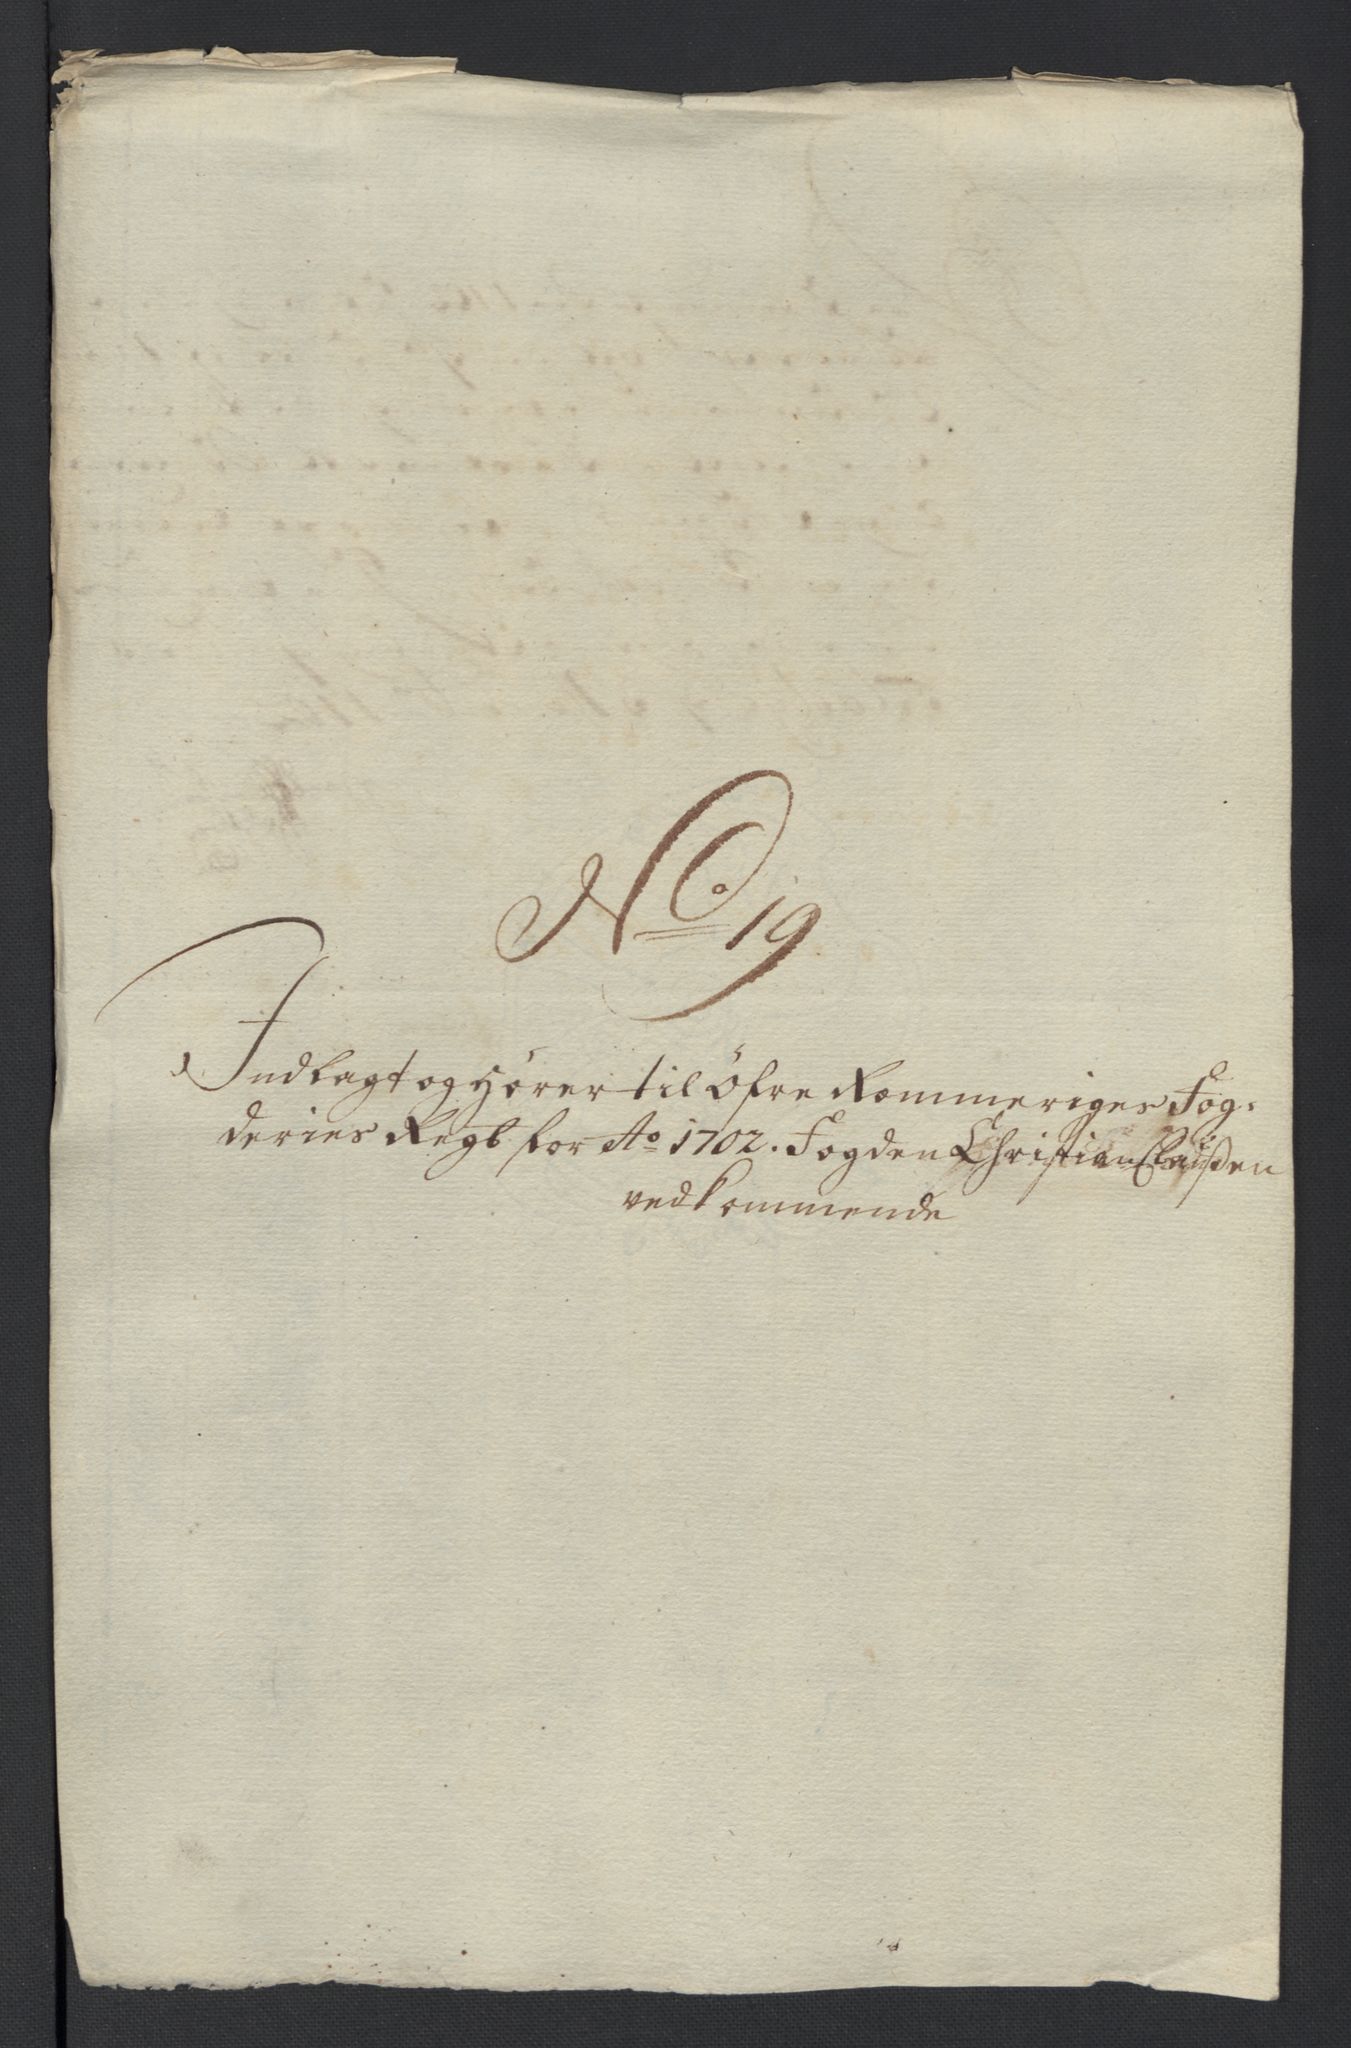 No 19
Indlagt og Hører til Øfre Rommeriges Fog-
deries Regb for Ao 1702. Fogden Christian Clausen
vedkommende